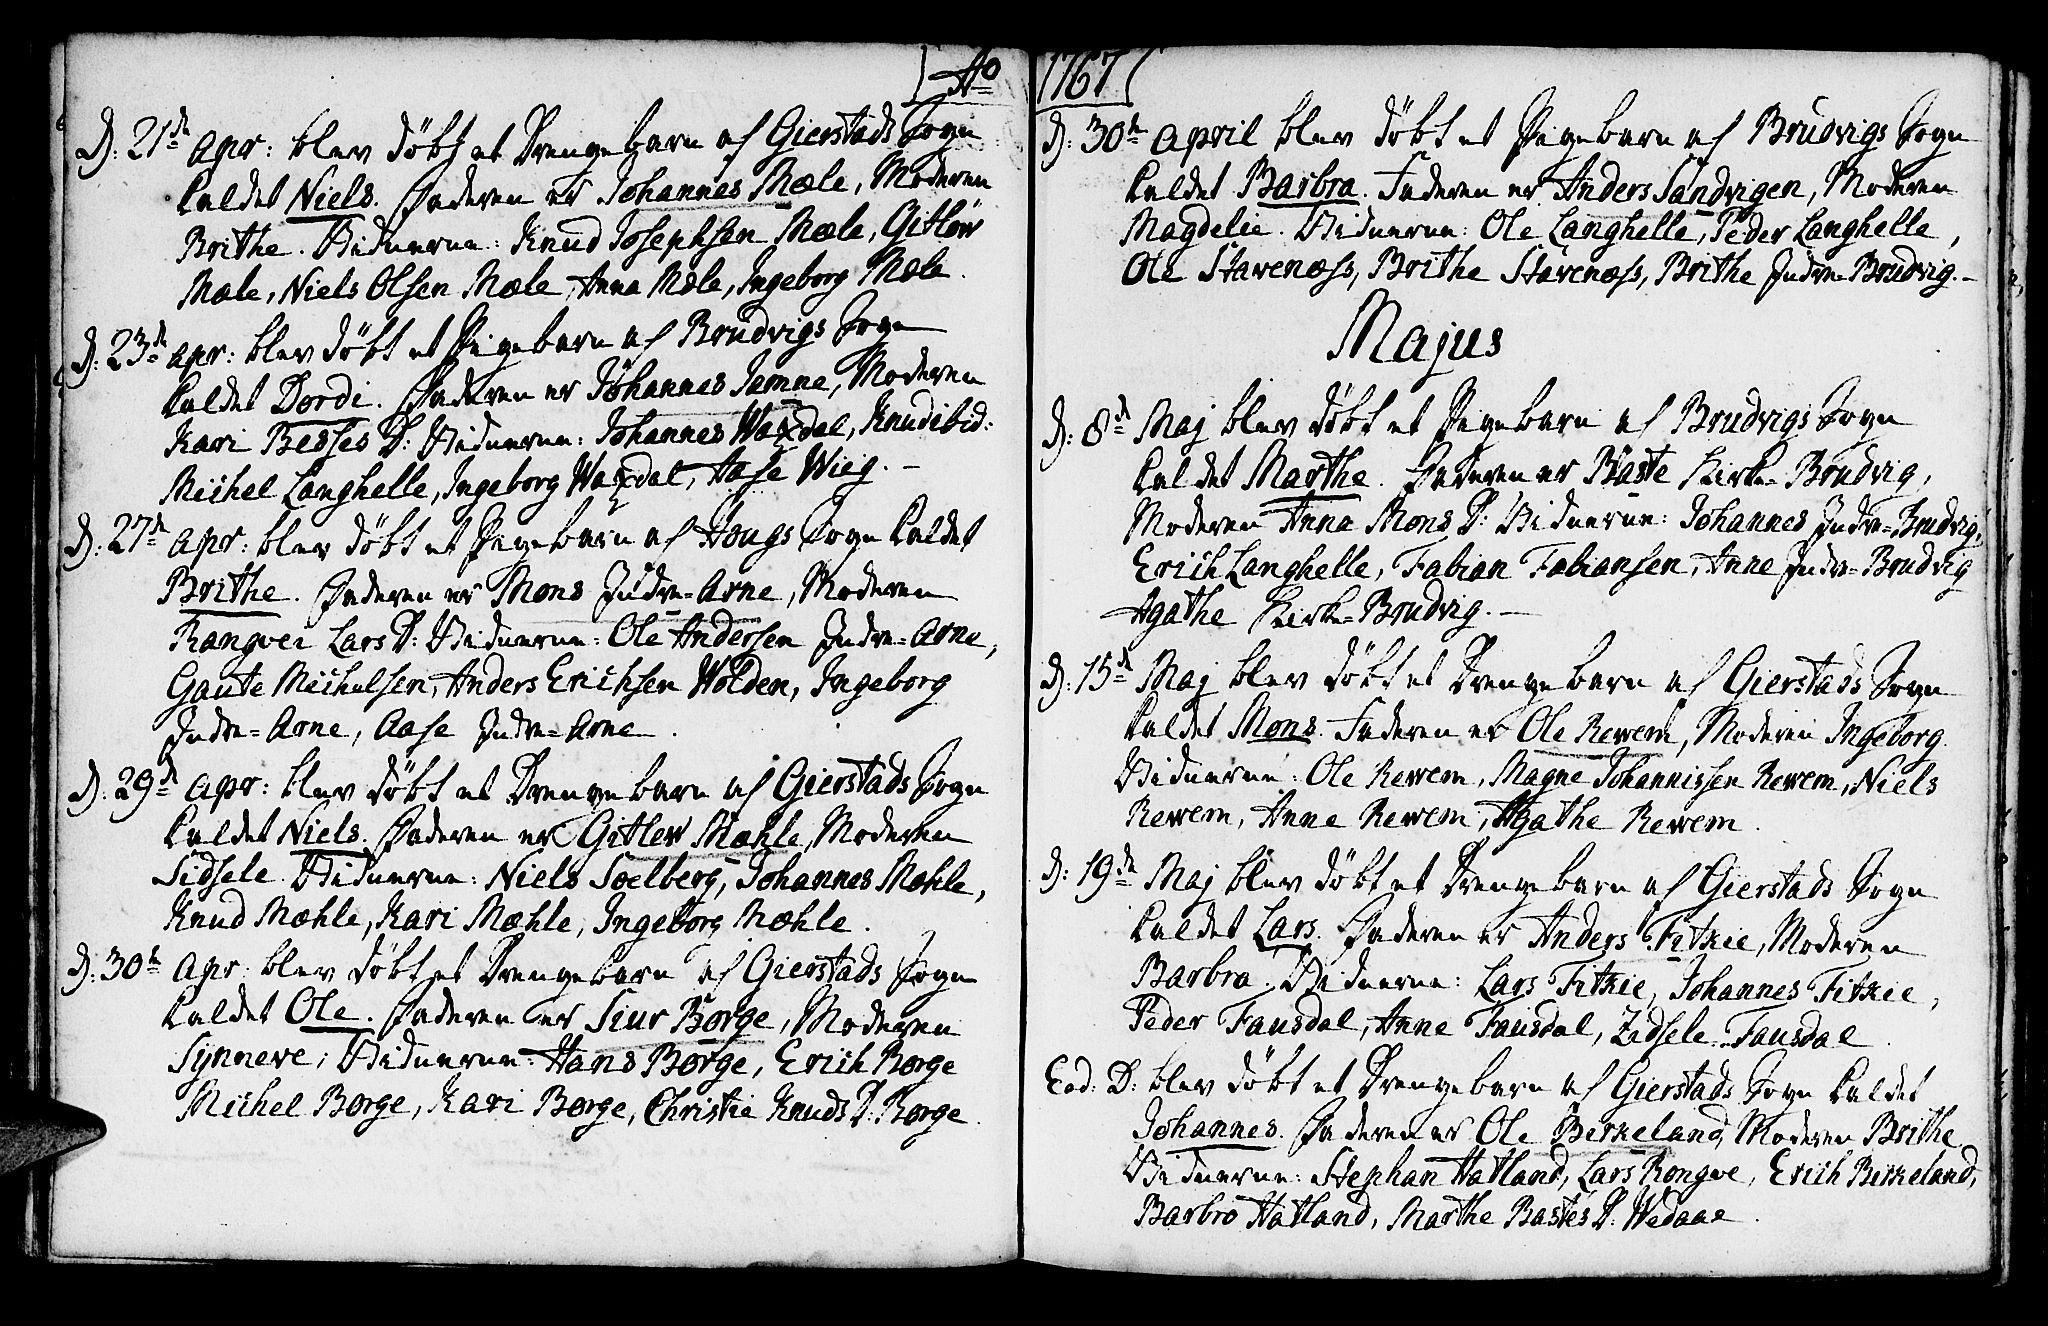 Ao 1767
D: 21de Apr: blev døbt et Drengebarn af Gierstads Sogn
kaldet Niels. Faderen er Johannes Mæle, Moderen
Brithe. Vidnerne: Knud Josephsen Mæle, Gitlöv
Mæle, Niels Olsen Mæle, Anna Mæle, Ingeborg Mæle.
D: 23de Apr: blev døbt et Pigebarn af Brudvigs Sogn
kaldet Dordi. Faderen er Johannes Jamne, Moderen
Kari Besses D: Vidnerne: Johannes Waxdal, Knud ibid:
Michel Langhelle, Ingeborg Waxdal, Aase Wiig.
D: 27de Apr: blev døbt et Pigebarn af Hougs Sogn kaldet
Brithe. Faderen er Mons Indre=Arne, Moderen
Rangvei Lars D: Vidnerne: Ole Andersen Indre=Arne,
Gaute Michelsen, Anders Erichsen Wolden, Ingeborg
Indre=Arne, Aase Indre=Arne.
D: 29de Apr: blev døbt et Drengebarn af Gierstads Sogn
kaldet Niels. Faderen er Gitlev Mæhle, Moderen
Sidsele. Vidnerne: Niels Soelberg, Johannes Mæhle,
Knud Mæhle, Kari Mæhle, Ingeborg Mæhle.
D: 30te Apr: blev døbt et Drengebarn af Gierstads Sogn
kaldet Ole. Faderen er Siur Borge, Moderen
Synneve; Vidnerne: Hans Borge, Erich Borge
Michel Borge, Kari Borge, Christie Knuds D: Borge.
D: 30te April blev døbt et Pigebarn af Brudvigs Sogn
kaldet Barbra. Faderen er Anders Sandvigen, Moderen
Magdelie. Vidnerne: Ole Langhelle, Peder Langhelle,
Ole Stavenæss, Brithe Stavenæss, Brithe Indre Brudvig.
Majus
D: 8de Maj blev døbt et Pigebarn af Brudvigs Sogn
kaldet Marthe. Faderen er Baste Kirke=Brudvig,
Moderen Anna Mons D: Vidnerne: Johannes Indre=Brudvig,
Erich Langhelle, Fabian Fabiansen, Anne Indre=Brudvig
Agathe Kirke=Brudvig.
D: 15de Maj blev døbt et Drengebarn af Gierstads Sogn
kaldet Mons. Faderen er Ole Rewem, Moderen Ingeborg.
Vidnerne: Ole Rewem, Magne Johannissen Rewem, Niels
Rewem, Anne Rewem, Agathe Rewem.
D: 19de Maj blev døbt et Drengebarn af Gierstads Sogn
kaldet Lars. Faderen er Anders Fitxie, Moderen
Barbra. Vidnerne: Lars Fitxie, Johannes Fitxie,
Peder Fausdal, Anne Fausdal, Zidsele Fausdal.
Eod: D: blev døbt et Drengebarn af Gierstads Sogn kaldet
Johannes. Faderen er Ole Berkeland, Moderen Brithe
Vidnerne: Stephan Hatland, Lars Rongve, Erich Birkeland,
Barbro Hatland, Marthe Bastes D: Wedaae.